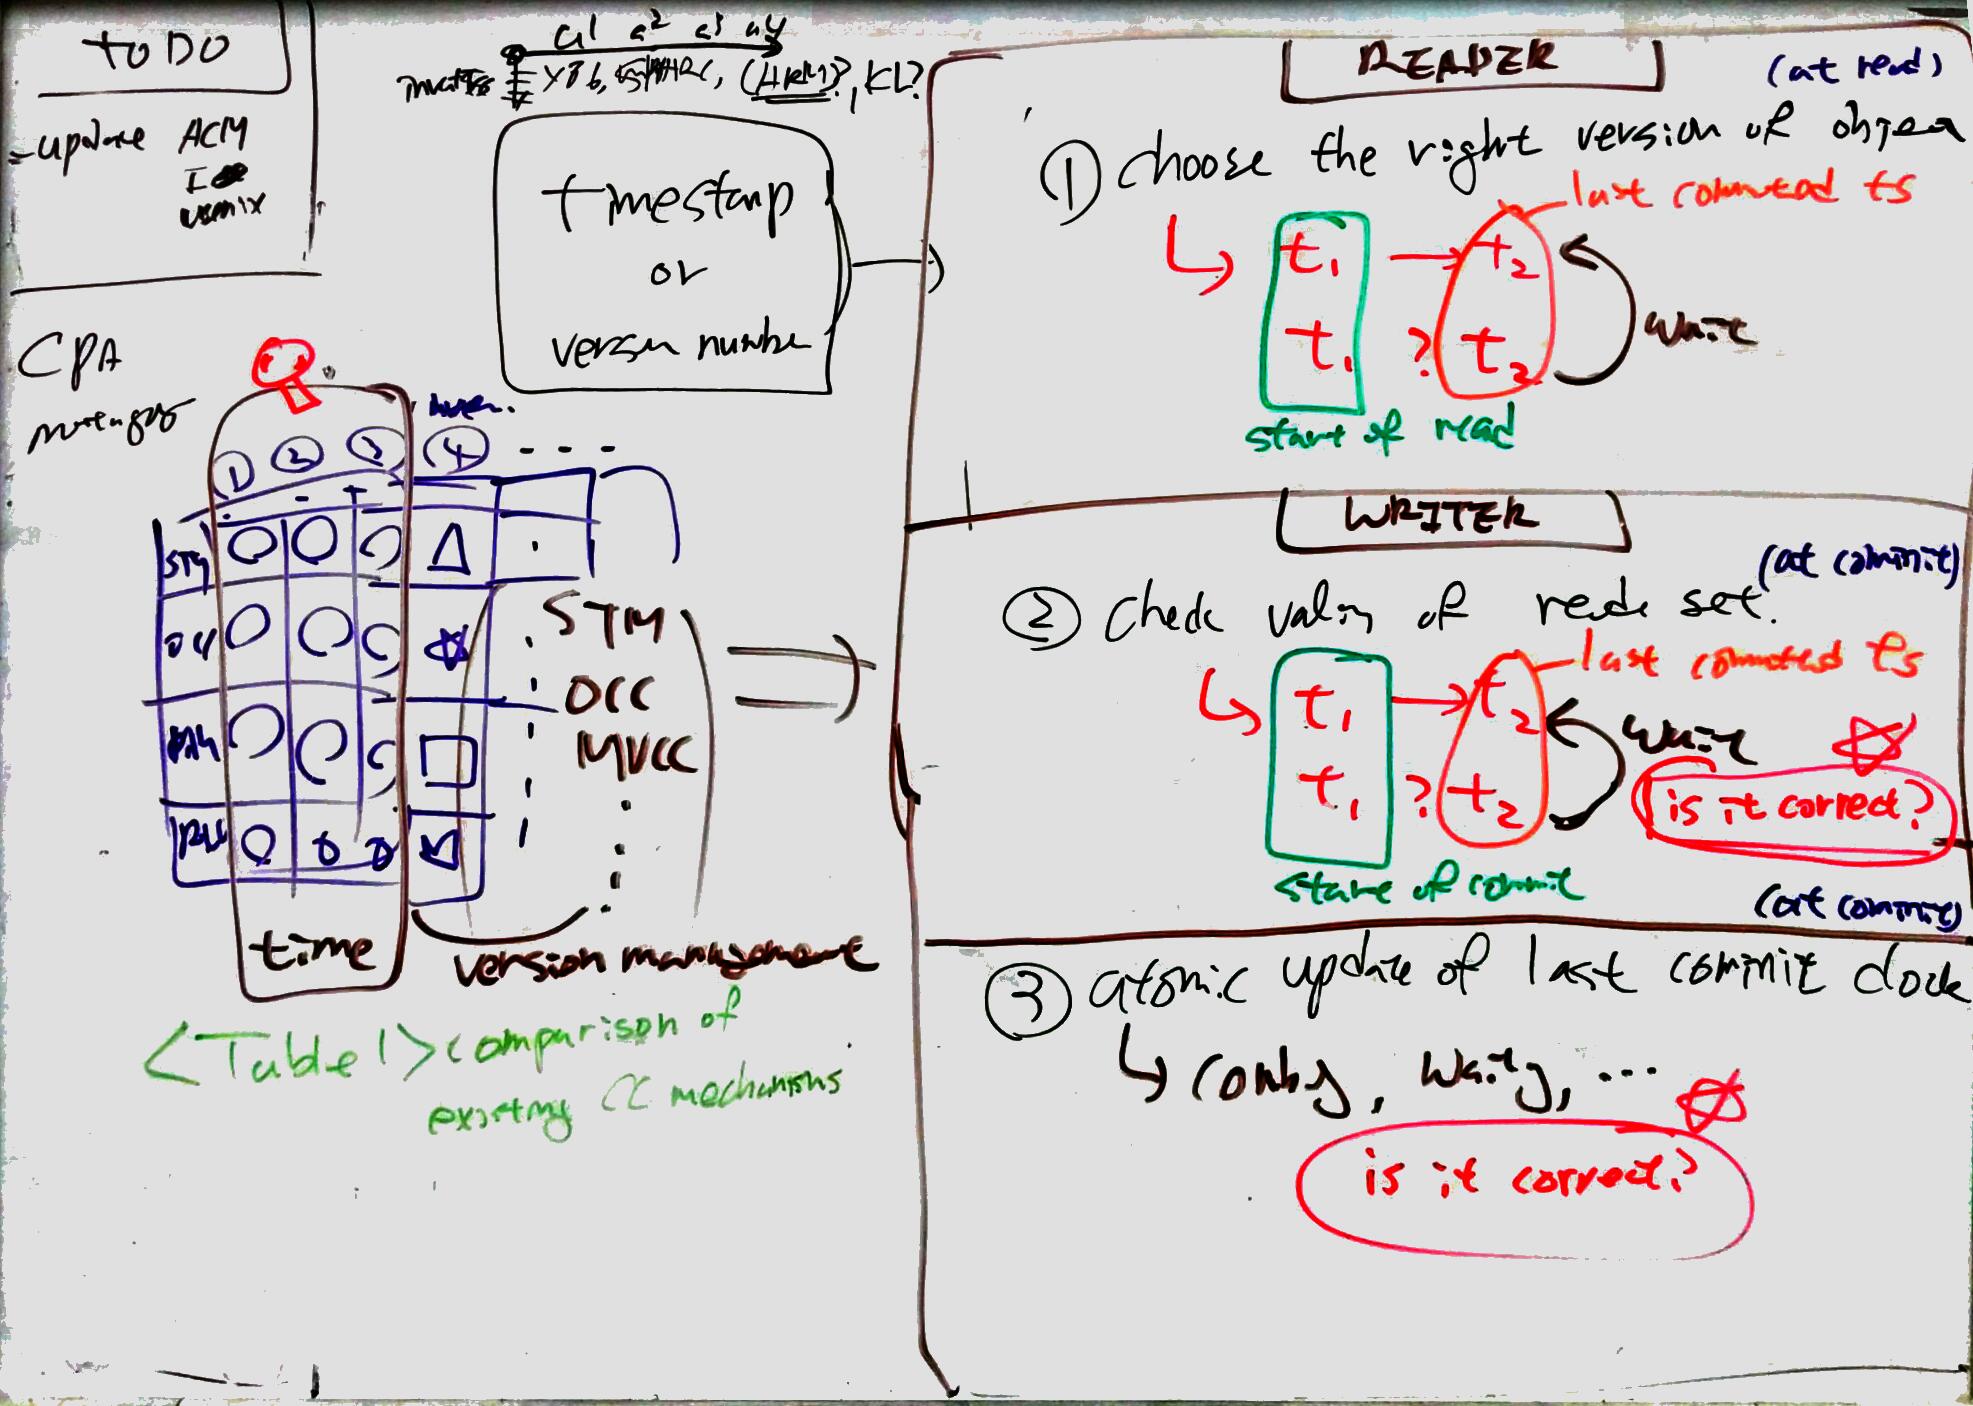 TO DO
- update ACM
usenix
a1 a2 a3 a4
timestamp
or
version number
CPA
① ② ③ ④ - - -
STM
OCC
MVCC
time
version management
<Table 1> comparison of
existing CC mechanisms
READER
(at read)
① choose the right version of object
last committed ts
t1 → t2
t1 ? t2
wait
start of read
WRITER
(at commit)
② check validity of read set.
last committed ts
t1 → t2
t1 ? t2
wait
is it correct?
start of commit
(at commit)
③ atomic update of last commit clock
is it correct?